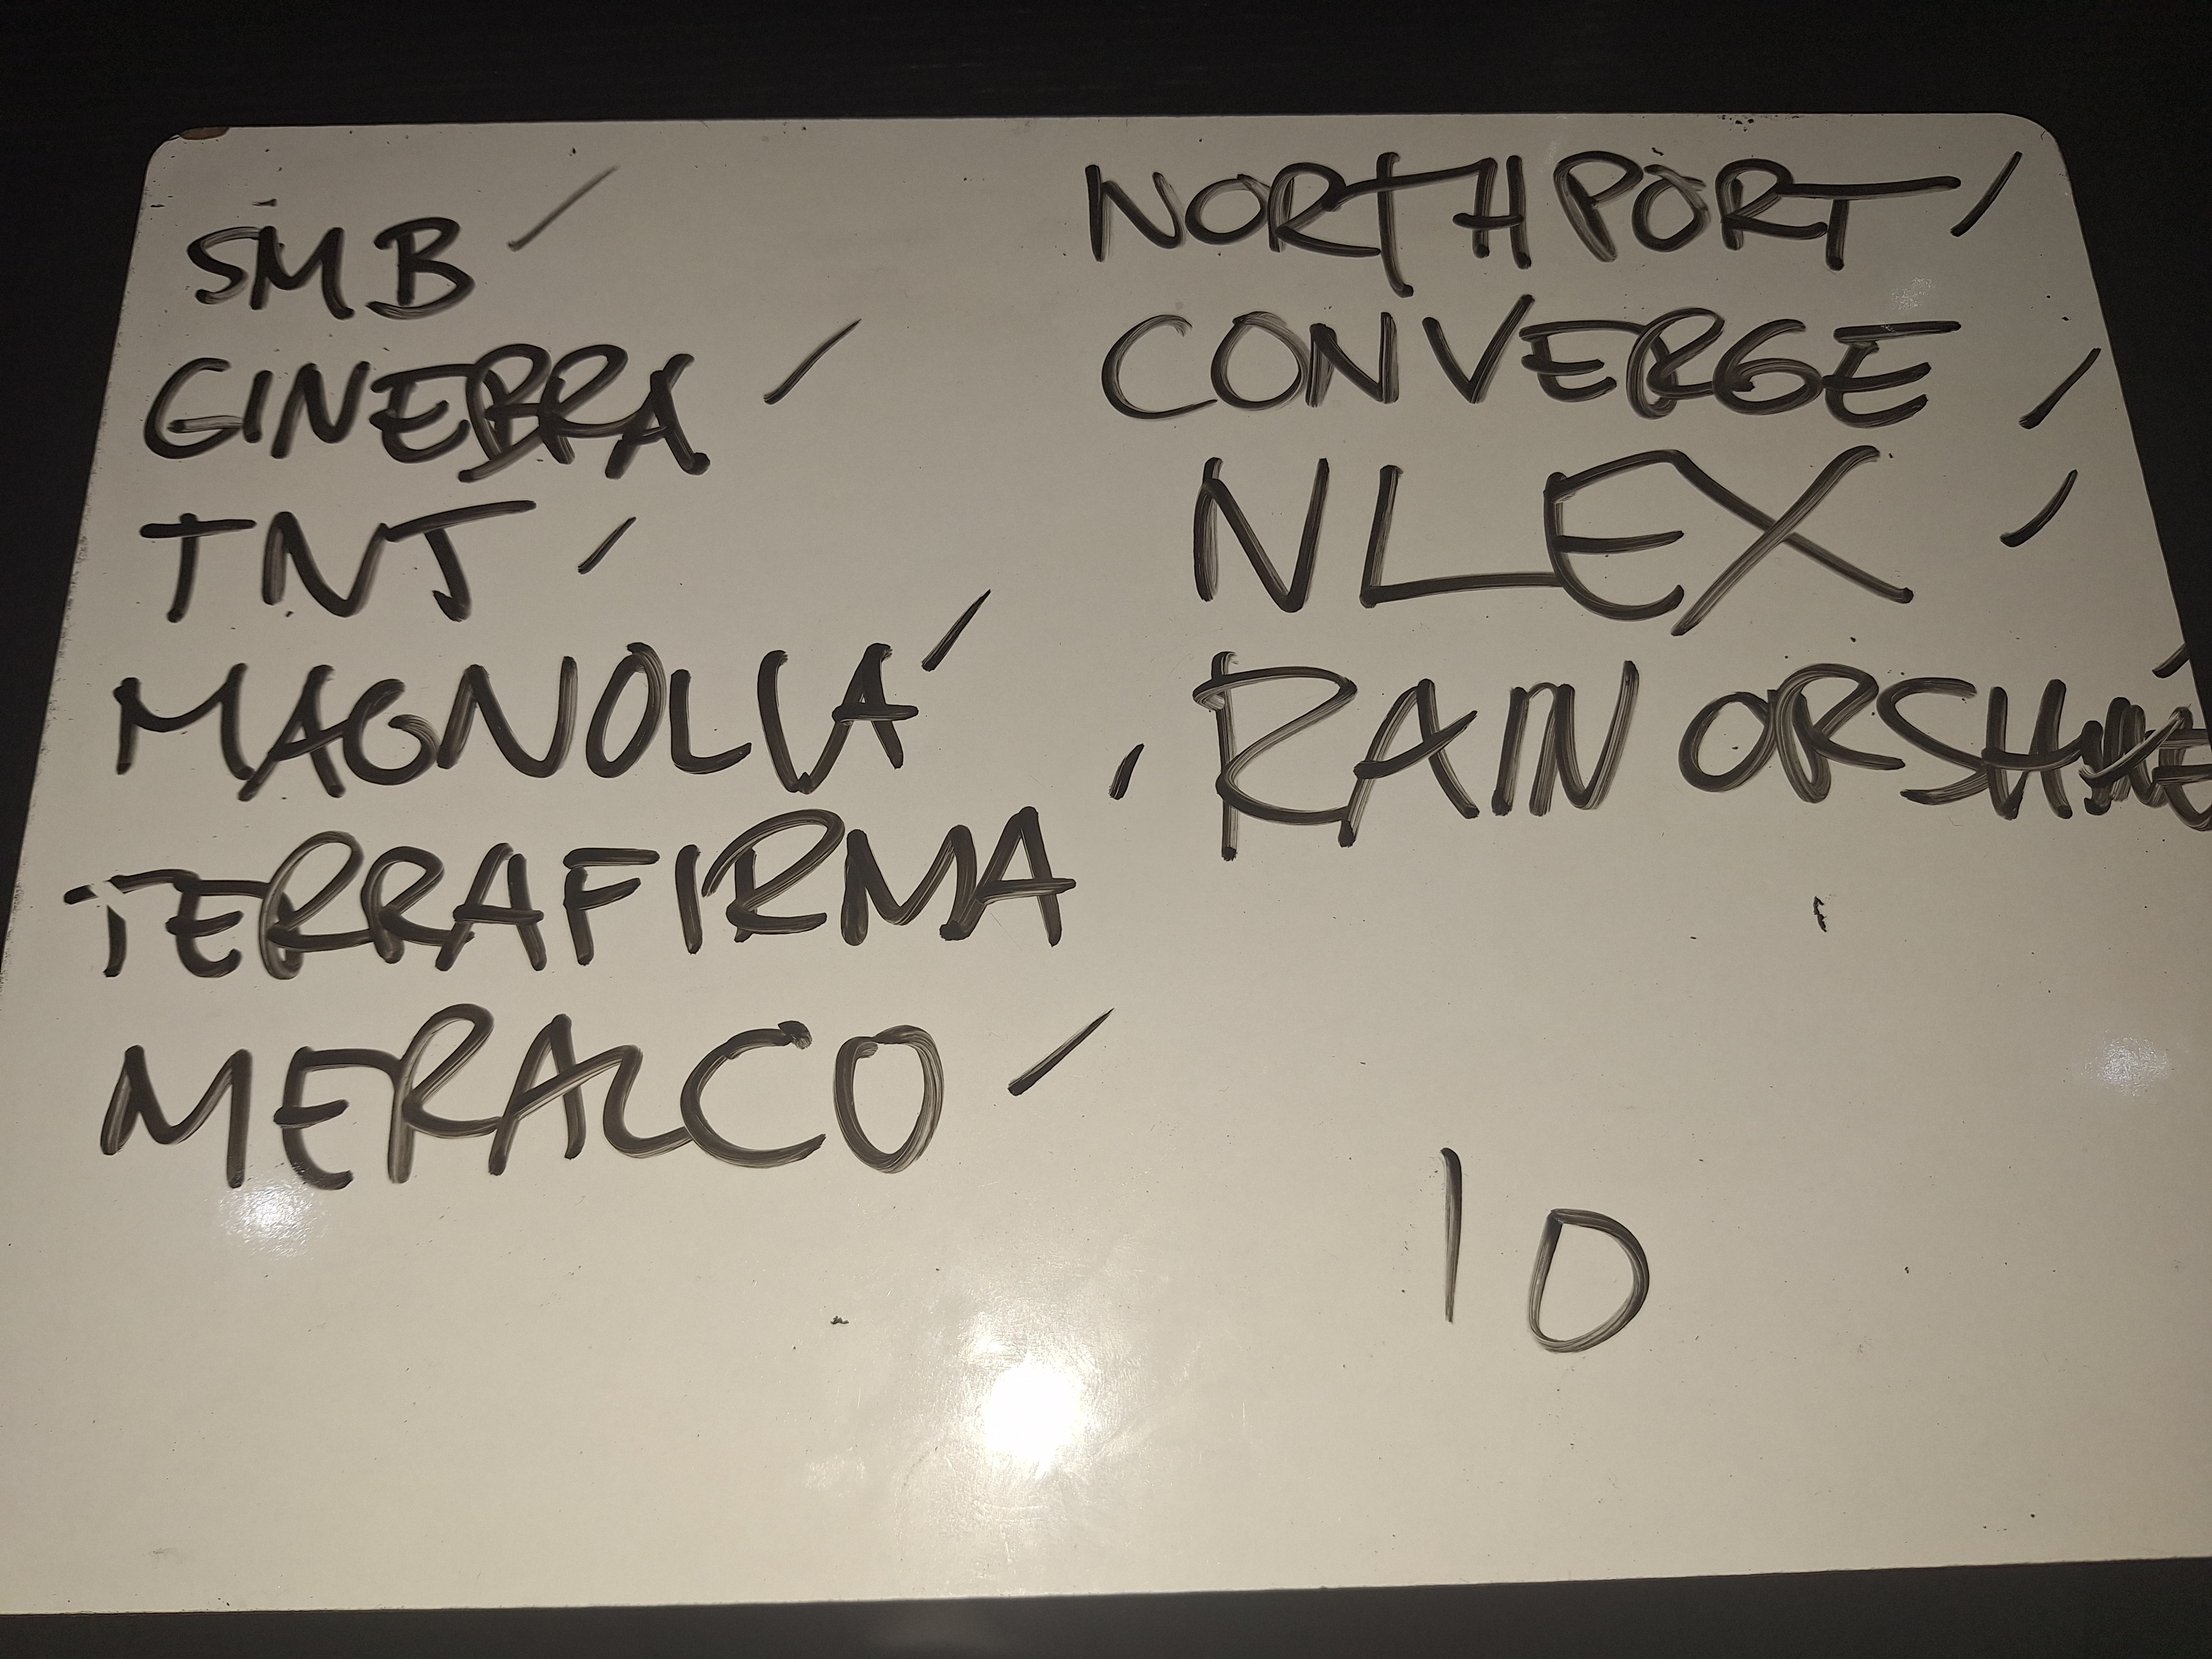 SMB
GINEBRA
TNT
MAGNOLIA
TERRAFIRMA
MERALCO
NORTHPORT
CONVERGE
NLEX
RAIN OR SHINE
10